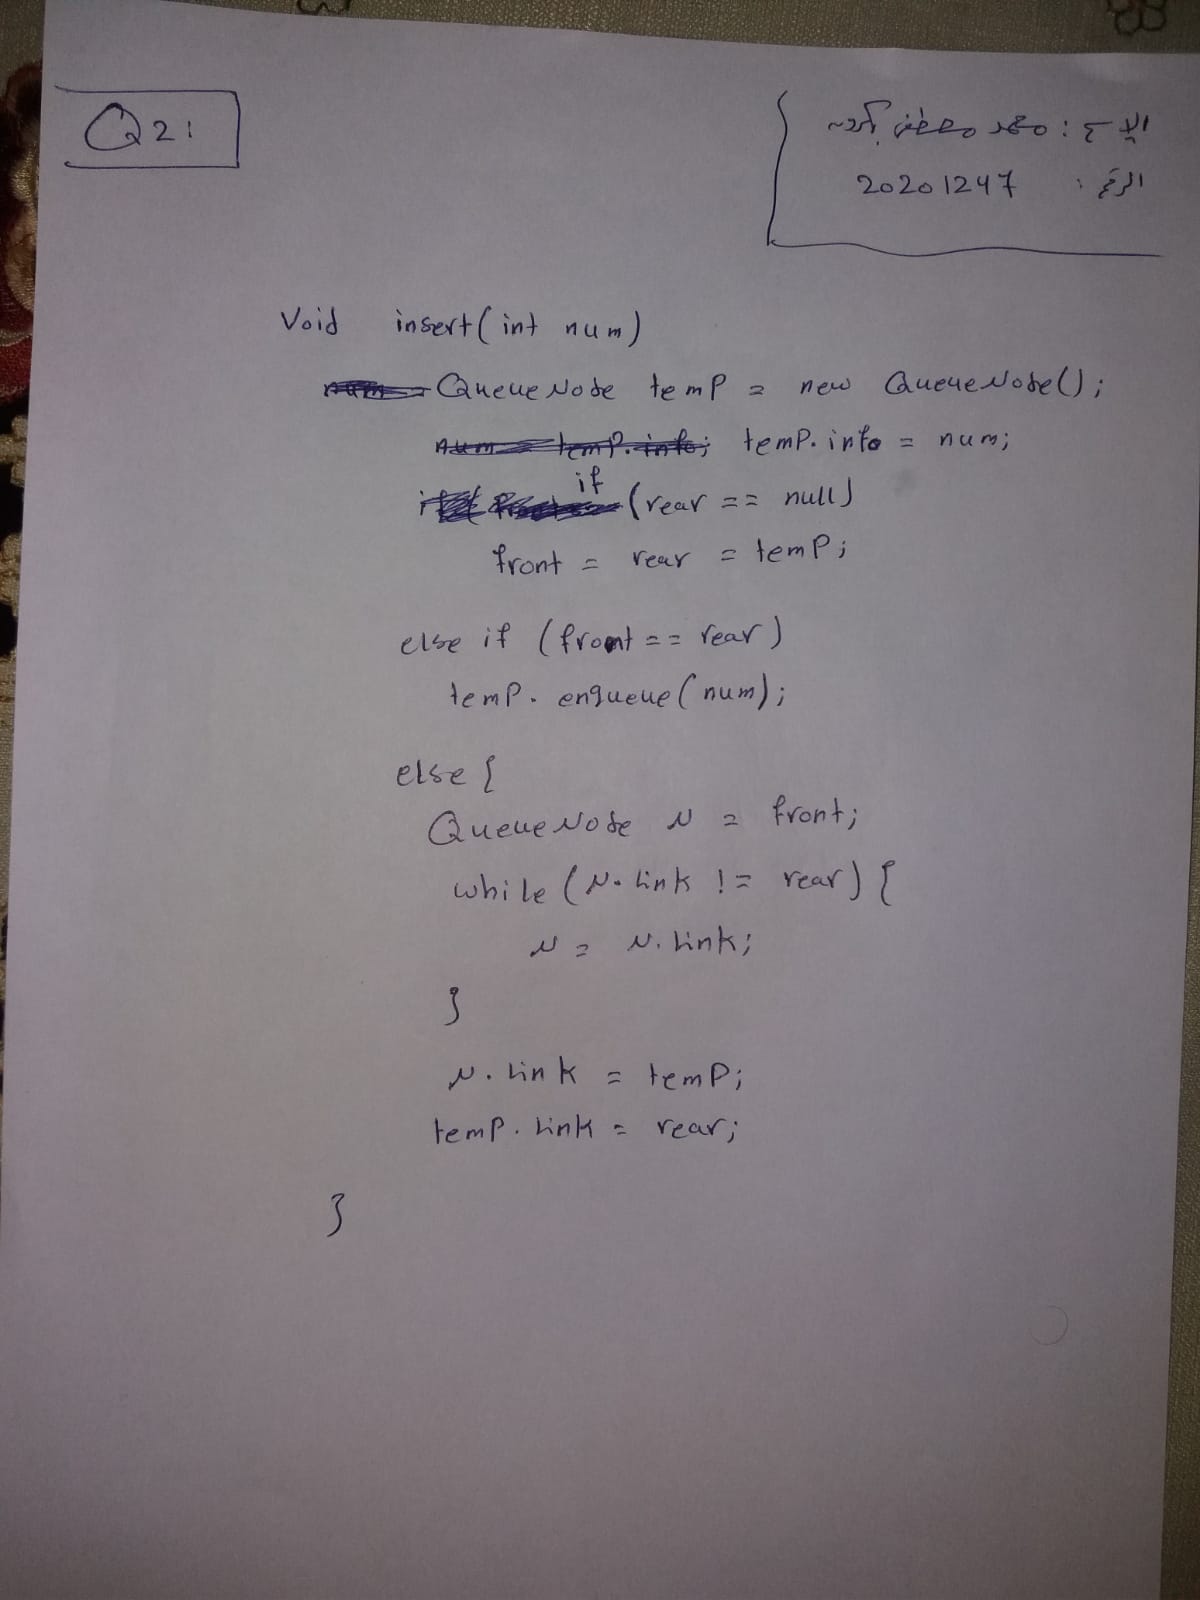 Q2:
الاسم : محمد مصطفى
الرقم : 20201247
Void insert(int num)
QueueNode temp = new QueueNode();
temp.info = num;
if (rear == null)
front = rear = temp;
else if (front == rear)
temp.enqueue(num);
else {
QueueNode N = front;
while (N.link != rear) {
N = N.link;
}
N.link = temp;
temp.link = rear;
}